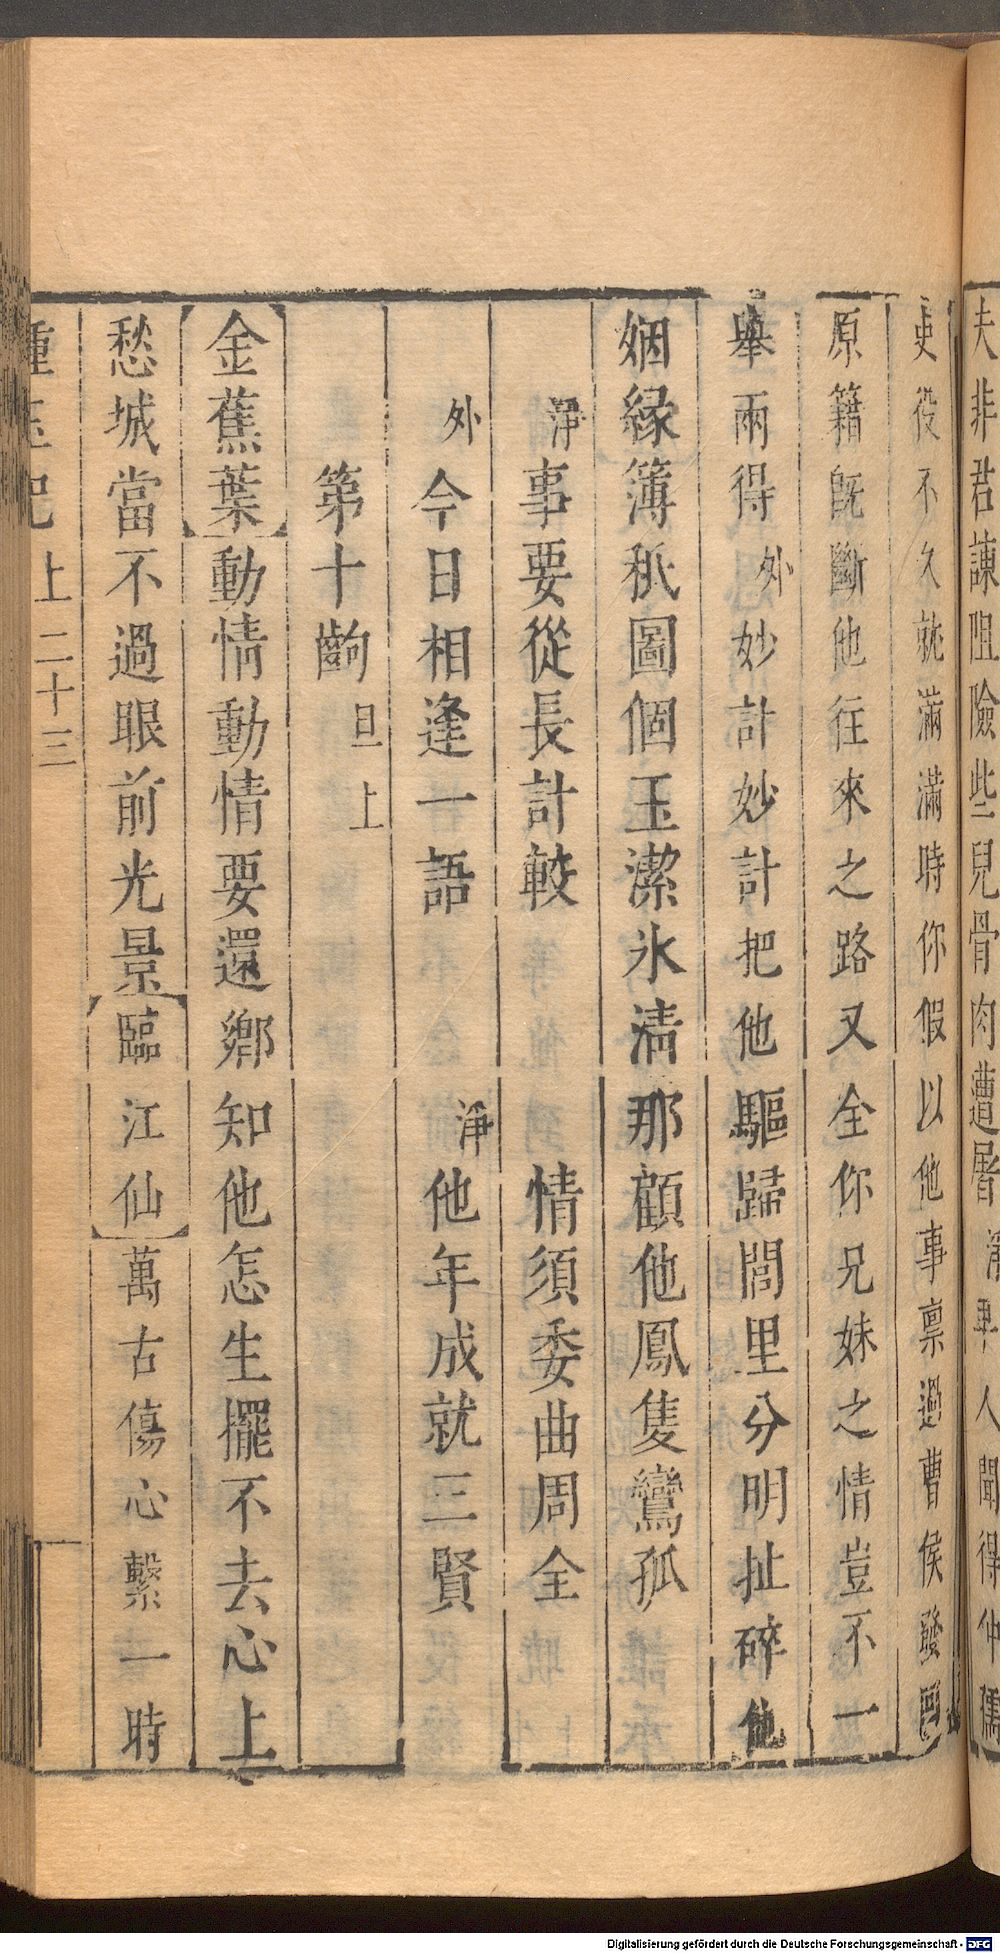 夫非君諫阻險些兒骨肉遭屠淨卑人聞得仲孺
吏役不久就滿滿時你假以他事禀過曹侯發回
原籍旣斷他往來之路又全你兄妹之情豈不一
舉兩得外妙計妙計把他驅歸閭里分明扯碎他
姻縁簿秖圖個玉潔氷清那顧他鳳隻鸞孤
淨事要從長計較 情須委曲周全
外今日相逢一語 淨他年成就三賢
第十齣 旦上
【金蕉葉】動情動情要還鄉知他怎生擺不去心上
愁城當不過眼前光景【臨江仙】萬古傷心繫一時
種玉記 上 二十三
Digitalisierung gefördert durch die Deutsche Forschungsgemeinschaft - DFG